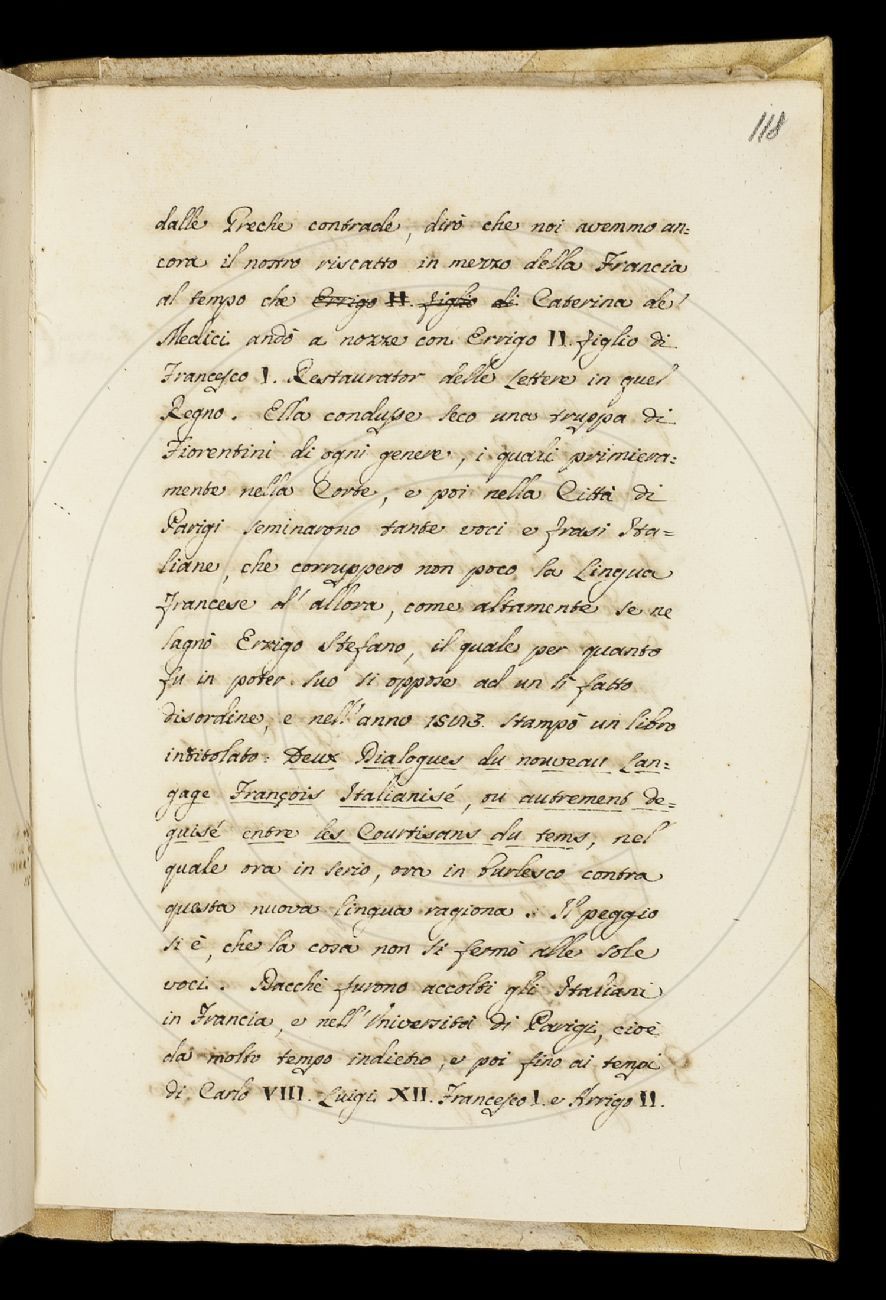 118
dalle Greche contrade, dirò che noi avemmo an=
cora il nostro riscatto in mezzo della Francia
al tempo che Errigo II. figlio di Caterina de'
Medici andò a nozze con Errigo II. figlio di
Francesco I. Restaurator delle Lettere in quel
Regno. Ella condusse seco una truppa di
Fiorentini di ogni genere, i quali primiera=
mente nella Corte, e poi nella Città di
Parigi seminarono tante voci e frasi Ita=
liane, che corruppero non poco la Lingua
Francese d'allora, come altamente se ne
lagnò Errigo Stefano, il quale per quanto
fu in poter suo si oppose ad un sì fatto
disordine, e nell'anno stampò un libro
intitolato: Deux Dialogues du nouveau Lan=
gage François Italianisé, ou autrement de=
guisé entre les Courtisans du tems, nel
quale ora in serio, ora in burlesco contra
questa nuova lingua ragiona. Il peggio
si è, che la cosa non si fermò alle sole
voci. Dacchè furono accolti gli Italiani
in Francia, e nell'Università di Parigi, cioè
da molto tempo indietro, e poi fino ai tempi
di Carlo VIII. Luigi XII. Francesco I. e Arrigo II.